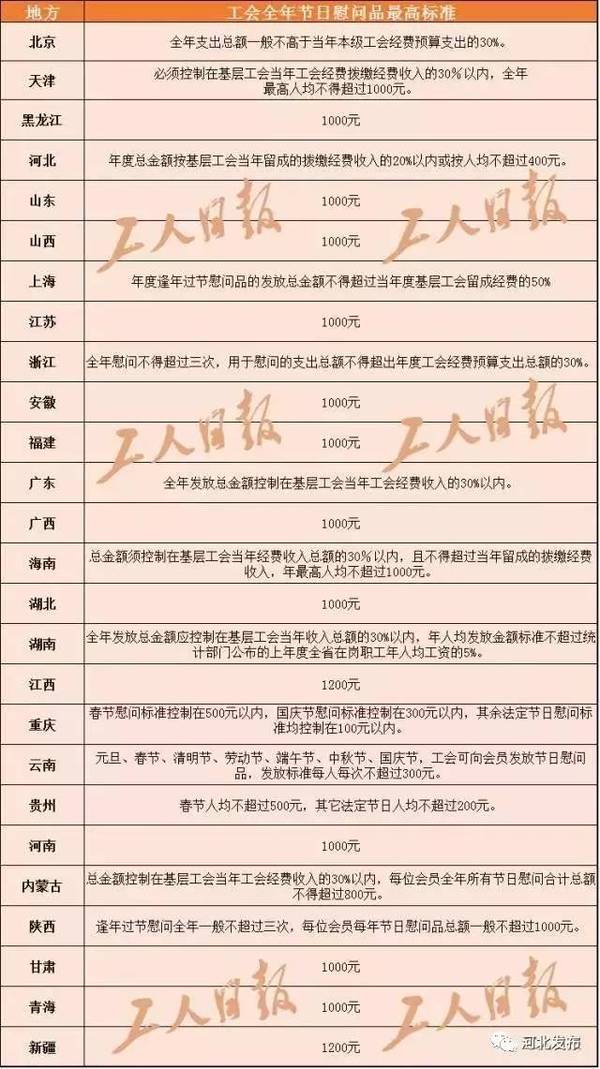 地方 工会全年节日慰问品最高标准
北京 全年支出总额一般不高于当年本级工会经费预算支出的30%。
天津 必须控制在基层工会当年工会经费拨缴经费收入的30%以内，全年
最高人均不得超过1000元。
黑龙江 1000元
河北 年度总金额按基层工会当年留成的拨缴经费收入的20%以内或按人均不超过400元。
山东 1000元
工人日报 工人日报
山西 1000元
上海 年度逢年过节慰问品的发放总金额不得超过当年度基层工会留成经费的50%
江苏 1000元
浙江 全年慰问不得超过三次，用于慰问的支出总额不得超出年度工会经费预算支出总额的30%。
安徽 1000元
工人日报 工人日报
福建 1000元
广东 全年发放总金额控制在基层工会当年工会经费收入的30%以内。
广西 1000元
海南 总金额须控制在基层工会当年经费收入总额的30%以内，且不得超过当年留成的拨缴经费
收入，年最高人均不超过1000元。
湖北 1000元
湖南 全年发放总金额应控制在基层工会当年收入总额的30%以内，年人均发放金额标准不超过统
计部门公布的上年度全省在岗职工年人均工资的5%。
江西 1200元
重庆 春节慰问标准控制在500元以内，国庆节慰问标准控制在300元以内，其余法定节日慰问标
准均控制在100元以内。
云南 元旦、春节、清明节、劳动节、端午节、中秋节、国庆节，工会可向会员发放节日慰问
品，发放标准每人每次不超过300元。
贵州 春节人均不超过500元，其它法定节日人均不超过200元。
河南 1000元
内蒙古 总金额控制在基层工会当年工会经费收入的30%以内，每位会员全年所有节日慰问合计总额
不得超过800元。
陕西 逢年过节慰问全年一般不超过三次，每位会员每年节日慰问品总额一般不超过1000元。
甘肃 1000元
工人日报 工人日报
青海 1000元
新疆 1200元
河北发布